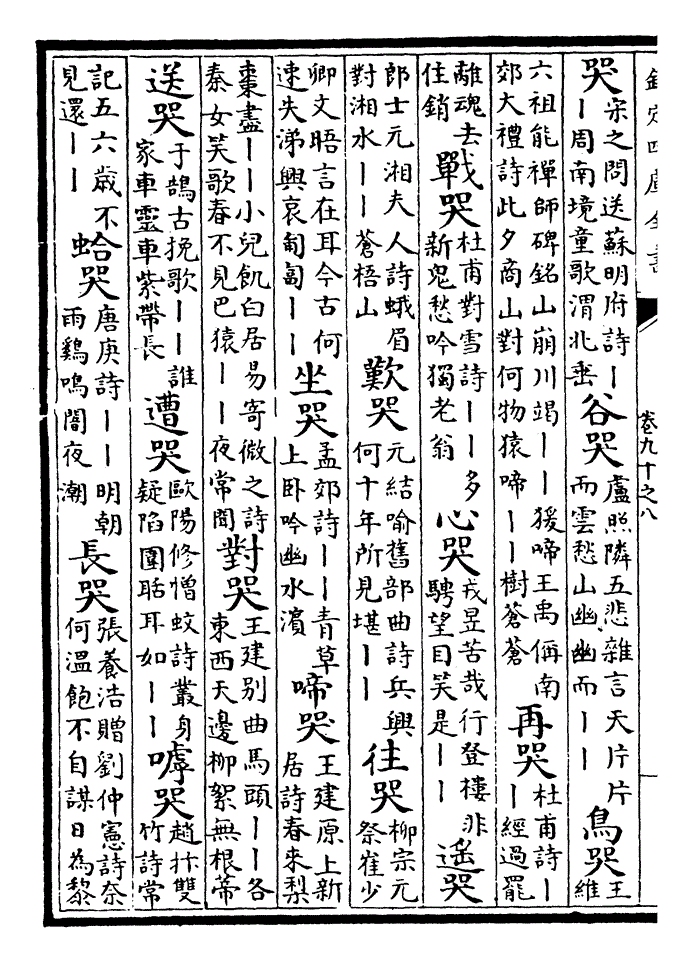 欽定四庫全書
卷九十之八
哭宋之問送蘇明府詩丨丨周南境童歌渭北垂谷哭盧照隣五悲雜言天片片而雲愁山幽幽而丨丨鳥哭王維
六祖能禪師碑銘山崩川竭丨丨猨啼王禹偁南郊大禮詩此夕商山對何物猿啼丨丨樹蒼蒼再哭杜甫詩丨丨經過罷
離魂去住銷戰哭杜甫對雪詩丨丨多新鬼愁吟獨老翁心哭戎昱苦哉行登樓非騁望目笑是丨丨遥哭
郎士元湘夫人詩蛾眉對湘水丨丨蒼梧山歎哭元結喻舊部曲詩兵興何十年所見堪丨丨往哭柳宗元祭崔少
卿文晤言在耳今古何速失涕興哀匍匐丨丨坐哭孟郊詩丨丨青草上卧吟幽水濱啼哭王建原上新居詩春來梨
棗盡丨丨小兒飢白居易寄微之詩秦女笑歌春不見巴猿丨丨夜常聞對哭王建别曲馬頭丨丨各東西天邊柳絮無根蒂
送哭于鵠古挽歌丨丨誰家車靈車紫帶長遭哭歐陽修憎蚊詩叢身疑陷圍聒耳如丨丨嘑哭趙抃雙竹詩常
記五六歲不見還丨丨蛤哭唐庚詩丨丨明朝雨鷄鳴闇夜潮長哭張養浩贈劉仲憲詩奈何溫飽不自謀日為黎